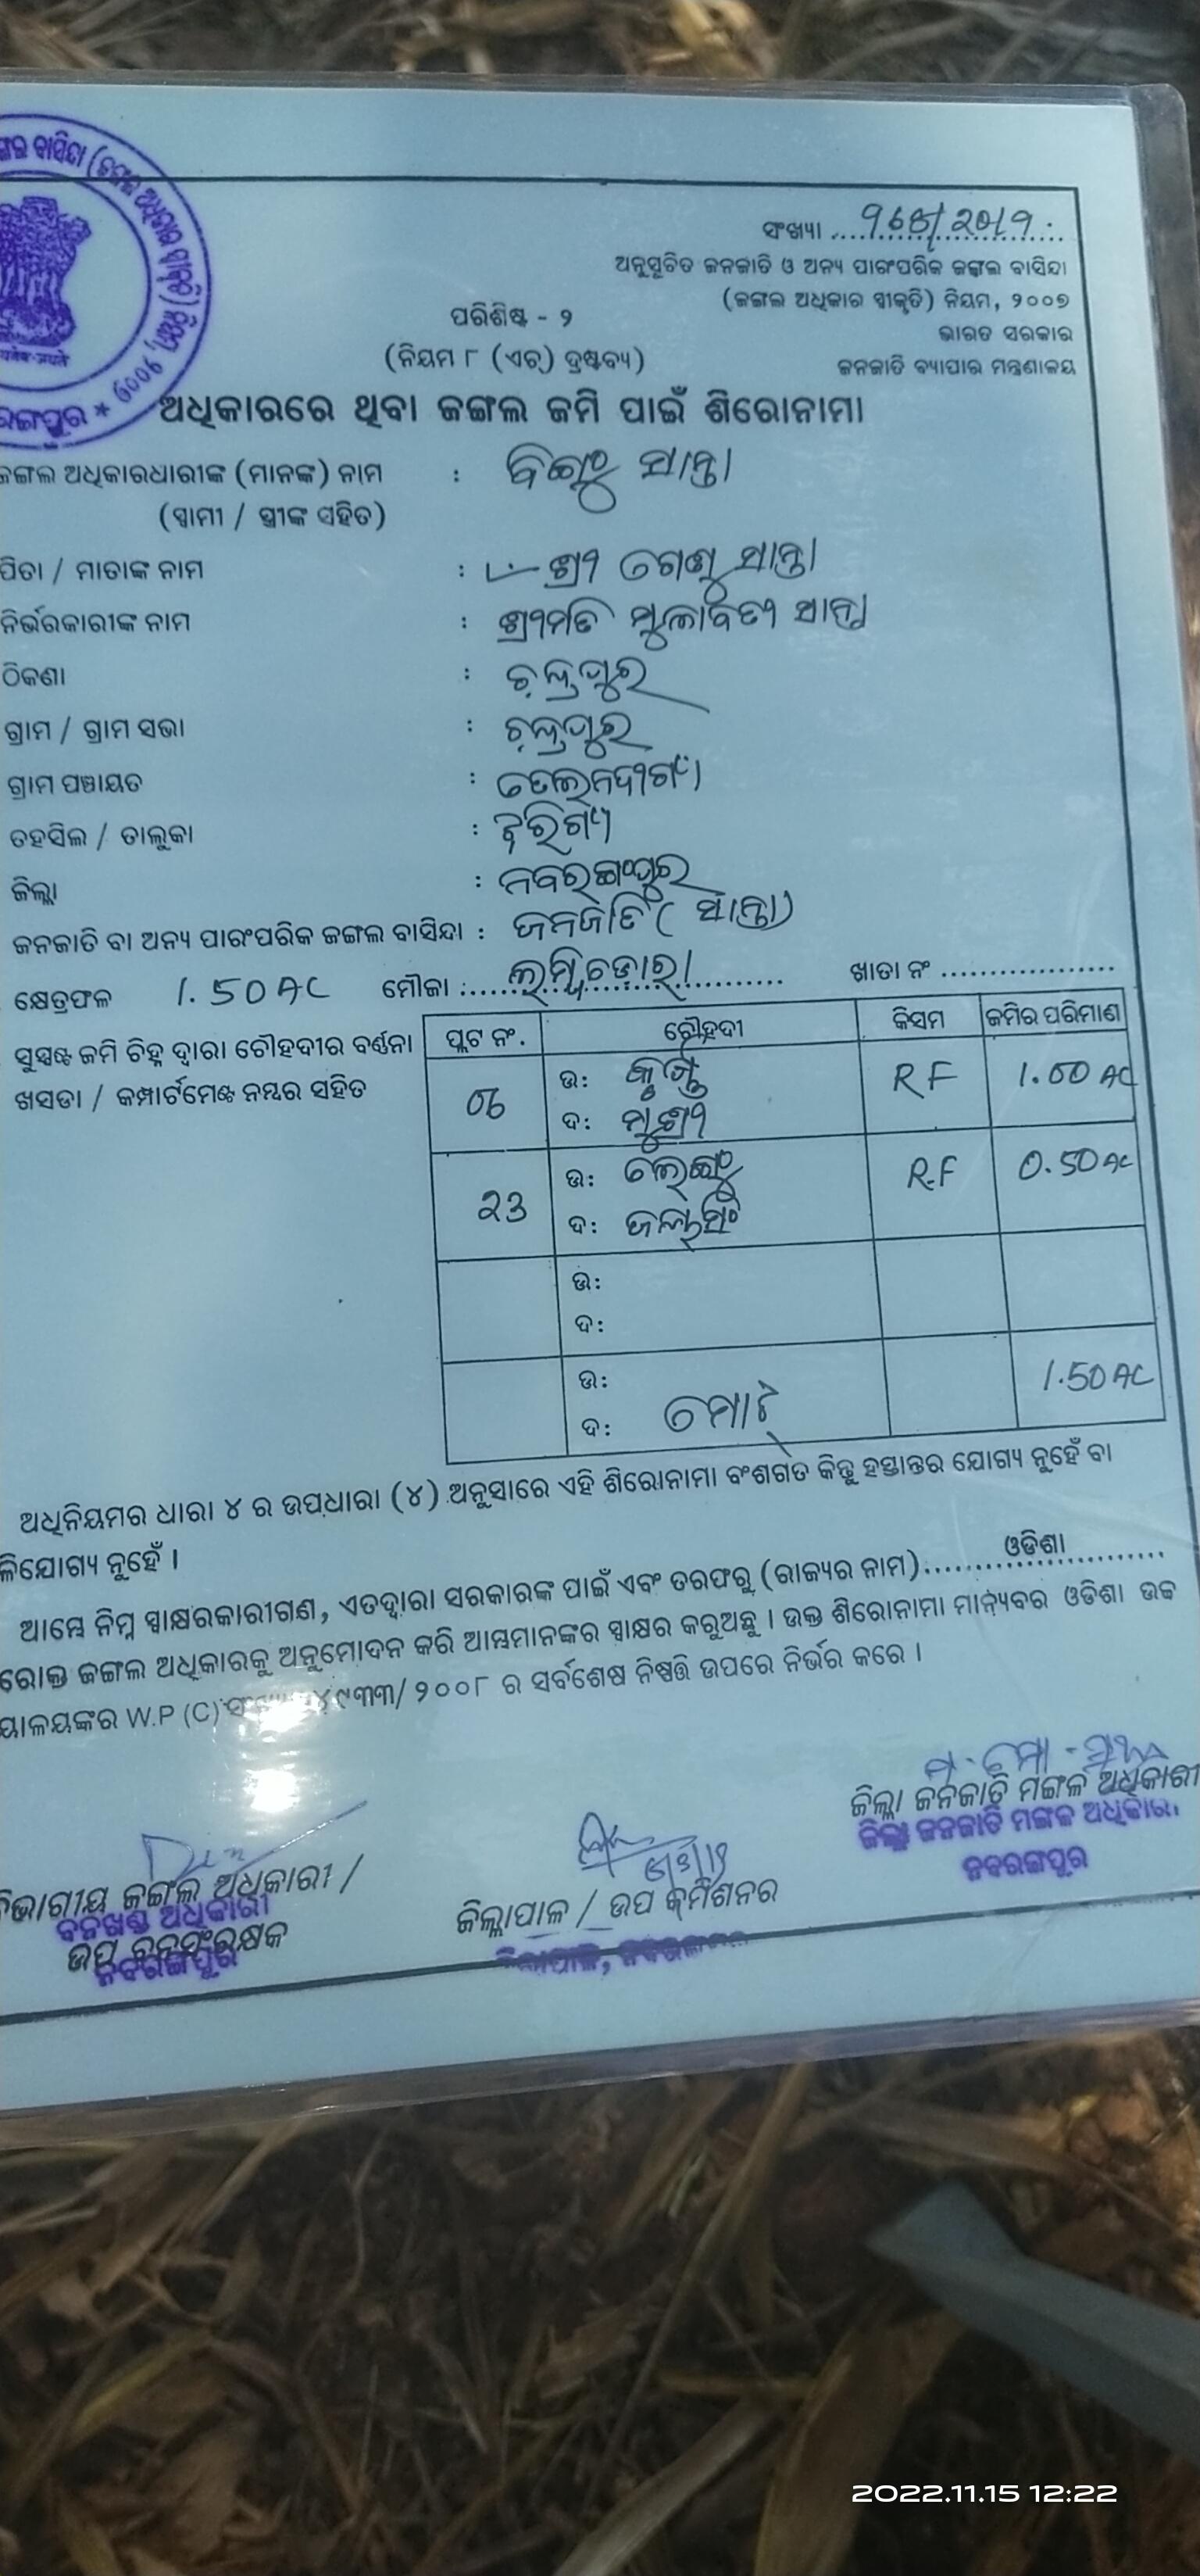 ଙ୍ଗଲ ବାସିନ୍ଦା (ଜଙ୍ଗଲ ଅଧିକାର ସ୍ୱୀକୃତି) ନିୟମ, ୨୦୦୭ *
ସଂଖ୍ୟା
ଅନୁସୂଚିତ ଜନଜାତି ଓ ଅନ୍ୟ ପାରଂପରିକ ଜଙ୍ଗଲ ବାସିନ୍ଦା
(ଜଙ୍ଗଲ ଅଧିକାର ସ୍ୱୀକୃତି) ନିୟମ, ୨୦୦୭
ପରିଶିଷ୍ଟ - ୨
ଭାରତ ସରକାର
(ନିୟମ ୮ (ଏଚ୍) ଦ୍ରଷ୍ଟବ୍ୟ)
ଜନଜାତି ବ୍ୟାପାର ମନ୍ତ୍ରଣାଳୟ
ଅଧିକାରରେ ଥିବା ଜଙ୍ଗଲ ଜମି ପାଇଁ ଶିରୋନାମା
ଜଙ୍ଗଲ ଅଧିକାରଧାରୀଙ୍କ (ମାନଙ୍କ) ନାମ : ସାନ୍ତା
(ସ୍ୱାମୀ / ସ୍ତ୍ରୀଙ୍କ ସହିତ)
ପିତା / ମାତାଙ୍କ ନାମ : ଶ୍ରୀ ସାନ୍ତା
ନିର୍ଭରକାରୀଙ୍କ ନାମ : ଶ୍ରୀମତି ସାନ୍ତା
ଠିକଣା : ଚନ୍ଦ୍ରପୁର
ଗ୍ରାମ / ଗ୍ରାମ ସଭା : ଚନ୍ଦ୍ରପୁର
ଗ୍ରାମ ପଞ୍ଚାୟତ : ତେଲନଦୀଗାଁ
ତହସିଲ / ତାଲୁକା : ଝରିଗାଁ
ଜିଲ୍ଲା : ନବରଙ୍ଗପୁର
ଜନଜାତି ବା ଅନ୍ୟ ପାରଂପରିକ ଜଙ୍ଗଲ ବାସିନ୍ଦା : ଜନଜାତି (ସାନ୍ତା)
କ୍ଷେତ୍ରଫଳ 1.50 AC ମୌଜା : ଖାତା ନଂ
ସୁସ୍ପଷ୍ଟ ଜମି ଚିହ୍ନ ଦ୍ୱାରା ଚୌହଦୀର ବର୍ଣ୍ଣନା
ଖସଡା / କମ୍ପାର୍ଟମେଣ୍ଟ ନମ୍ବର ସହିତ
ପ୍ଲଟ ନଂ. ଚୌହଦୀ କିସମ ଜମିର ପରିମାଣ
06 ଉ: RF 1.00 AC
ଦ:
23 ଉ: R.F 0.50 AC
ଦ:
ଉ:
ଦ:
ଉ: 1.50 AC
ଦ: ମୋଟ
ଅଧିନିୟମର ଧାରା ୪ ର ଉପଧାରା (୪) ଅନୁସାରେ ଏହି ଶିରୋନାମା ବଂଶଗତ କିନ୍ତୁ ହସ୍ତାନ୍ତର ଯୋଗ୍ୟ ନୁହେଁ ବା
ଳିଯୋଗ୍ୟ ନୁହେଁ ।
ଆମ୍ଭେ ନିମ୍ନ ସ୍ୱାକ୍ଷରକାରୀଗଣ, ଏତଦ୍ୱାରା ସରକାରଙ୍କ ପାଇଁ ଏବଂ ତରଫରୁ (ରାଜ୍ୟର ନାମ) ଓଡିଶା
ରୋକ୍ତ ଜଙ୍ଗଲ ଅଧିକାରକୁ ଅନୁମୋଦନ କରି ଆମ୍ଭମାନଙ୍କର ସ୍ୱାକ୍ଷର କରୁଅଛୁ । ଉକ୍ତ ଶିରୋନାମା ମାନ୍ୟବର ଓଡିଶା ଉଚ୍ଚ
ୟାଳୟଙ୍କର W.P (C) ୪୯୩୩/ ୨୦୦୮ ର ସର୍ବଶେଷ ନିଷ୍ପତ୍ତି ଉପରେ ନିର୍ଭର କରେ ।
ଜିଲ୍ଲା ଜନଜାତି ମଙ୍ଗଳ ଅଧିକାରୀ
ଜିଲ୍ଲା ଜନଜାତି ମଙ୍ଗଳ ଅଧିକାରୀ
ନବରଙ୍ଗପୁର
ବିଭାଗୀୟ ଜଙ୍ଗଲ ଅଧିକାରୀ /
ଜିଲ୍ଲାପାଳ / ଉପ କମିଶନର
ବନଖଣ୍ଡ ଅଧିକାରୀ
ଉପ ବନସଂରକ୍ଷକ
ନବରଙ୍ଗପୁର
2022.11.15 12:22